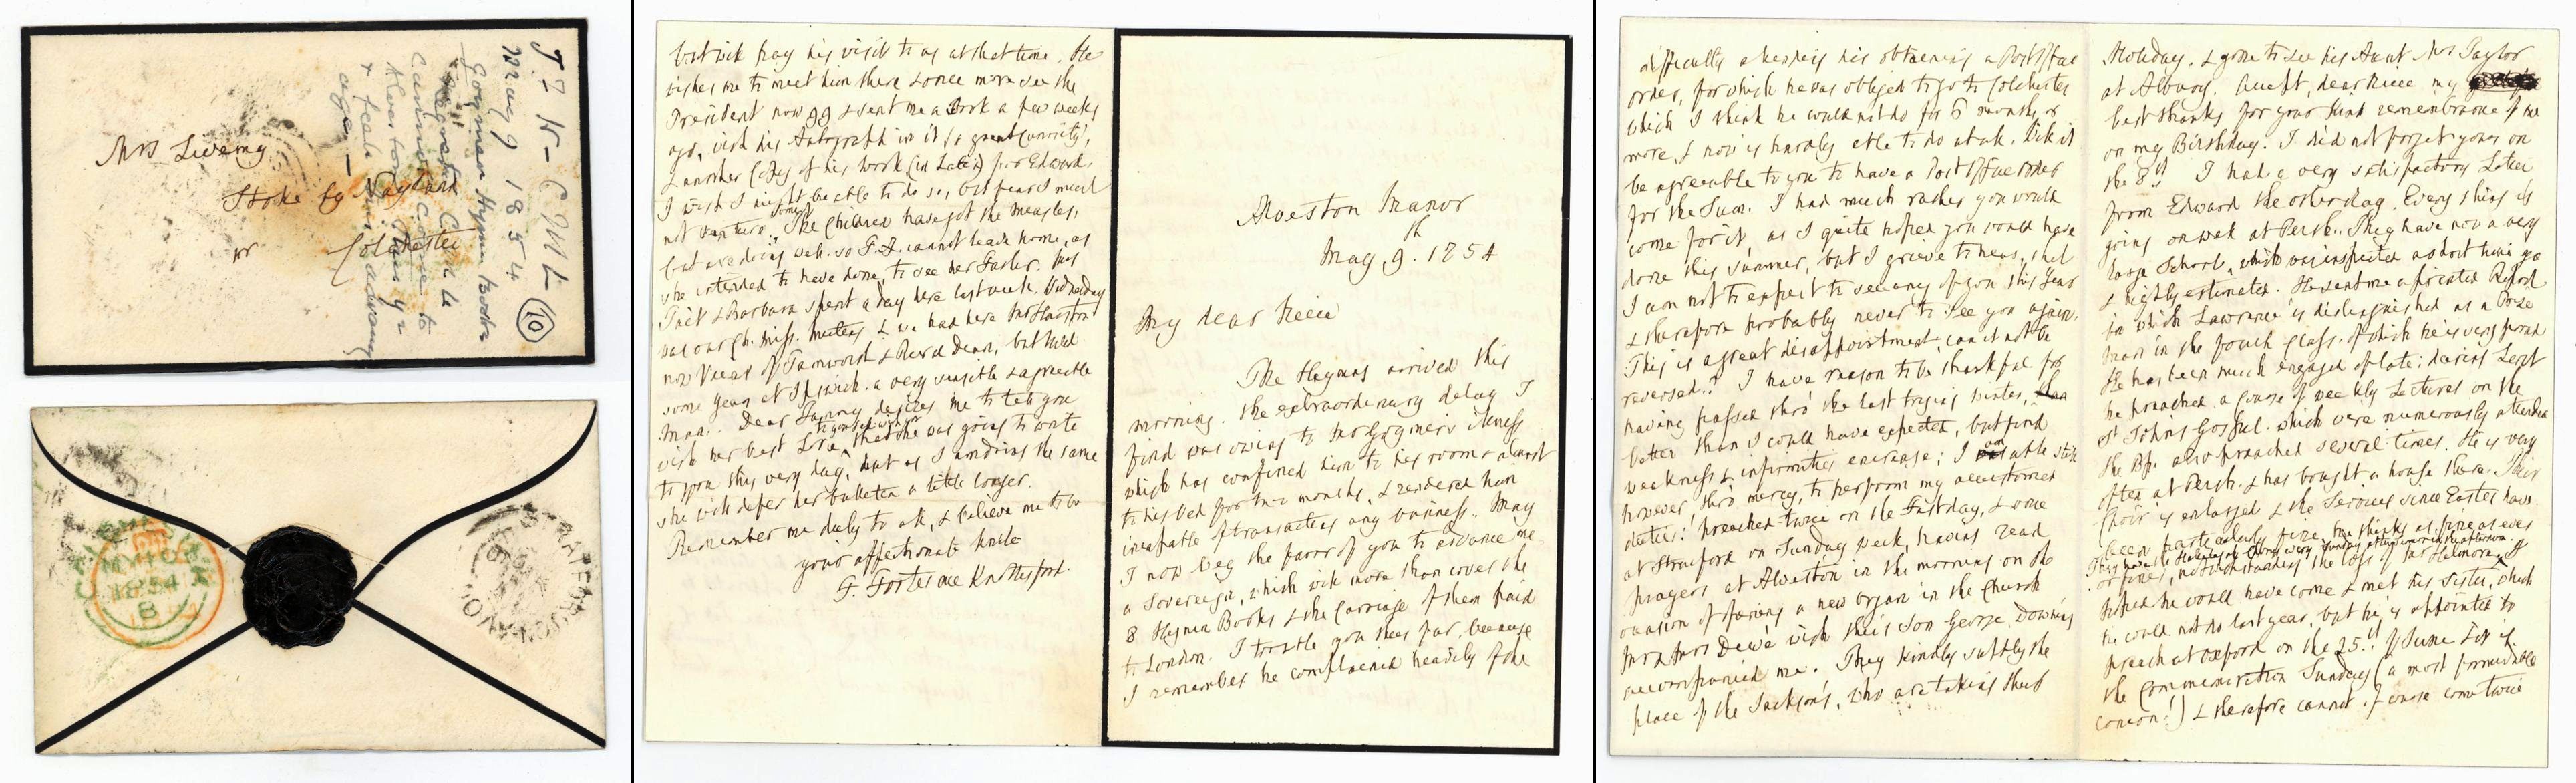 Mrs Liveing
Stoke by Nayland
nr Colchester
May 9 1854
Goymer Hymn Books
Cannot come to
Alveston
& feels
again —
10
MY 10
1854
B
Alveston Manor
May 9th. 1854
My dear Niece
The Hymns arrived this
morning. The extraordinary delay I
find was owing to Mr Goymer's illness
which has confined him to his room & almost
to his bed for two months, & rendered him
incapable of transacting any business. May
I now beg the favor of you to advance me
a Sovereign, which will more than cover the
8 Hymn Books & the Carriage of them paid
to London. I trouble you thus far, because
I remember he complained heavily of the
difficulty attending his obtaining a Post Office
order, for which he was obliged to go to Colchester
which I think he would not do for 6 months or
more, & now is hardly able to do at all. Will it
be agreeable to you to have a Post Office order
for the Sum. I had much rather you would
come for it, as I quite hoped you would have
done this summer, but I grieve to hear, that
I am not to expect to see any of you this Year
& therefore probably never to see you again.
This is a great disappointment, can it not be
reversed? I have reason to be thankful for
having passed thro' the last trying winter,
better than I could have expected, but find
weakness & infirmities encrease; I am able still
however, thro' mercy, to perform my accustomed
duties! preached twice on the Fastday, & once
at Stratford on Sunday week, having read
prayers at Alveston in the morning on the
occasion of opening a new Organ in the Church
Mr & Mrs Dewe with their Son George, Downing
accompanied me. They kindly supply the
place of the Jacksons, who are taking their
Holiday, & gone to see his Aunt Mrs Taylor
at Albury. Accept, dear Niece my
best thanks for your kind remembrance of me
on my Birthday. I did not forget yours on
the 8th. I had a very satisfactory Letter
from Edward the other day. Every thing is
going on well at Perth. They have now a very
large School, which was inspected a short time ago
& highly estimated. He sent me a printed Report
in which Lawrence is distinguished as a Prize
man in the fourth Class, of which he is very proud
He has been much engaged of late: during Lent
he preached a Course of weekly Lectures on the
St Johns Gospel. which were numerously attended
the Bp. also preached several times. He is very
often at Perth. & has bought a house there. Their
Choir is enlarged & the Services since Easter have
been particularly fine, he thinks as fine as ever
or finer, notwithstanding the loss of Mr Helmore. I
hoped he would have come & met his Sister, which
he could not do last year, but he is appointed to
preach at Oxford on the 25th of June wh is
the Commemoration Sunday (a most formidable
concern!) & therefore cannot of course come twice
but will pay his visit to us at that time. He
wishes me to meet him there & once more see the
President now 99 & sent me a Book a few weeks
ago, with his Autograph in it (a great Curiosity),
& another Copy of his work (in Latin) for Edward.
I wish I might be able to do so, but fear I must
not venture. Some of the Children have got the Measles,
but are doing well. so F.A. cannot leave home, as
she intended to have done, to see her Father. Mrs
Tait & Barbara spent a day here last week. Wednesday
was our Ch. Miss. Meeting & we had here
now Vicar of Tamworth & Rural Dean, but lived
some Years at Ipswich. a very sensible & agreeable
man. Dear Fanny desires me to tell you
with her best Love, that she was going to write
to you this very day, but as I am doing the same
she will defer her bulletin a little longer.
Remember me duly to all, & believe me to be
your affectionate Uncle
F. Fortescue Knottesford.